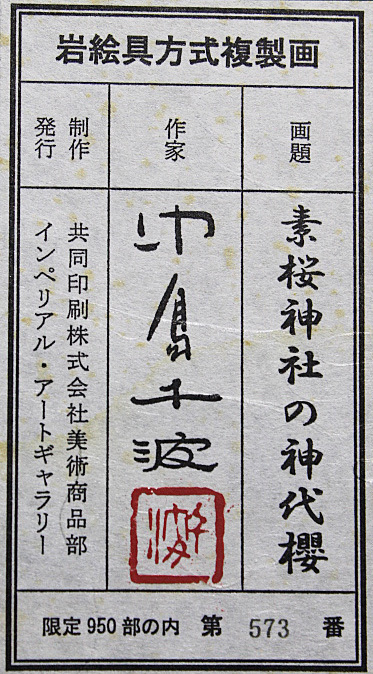 岩絵具方式複製画
画題
素桜神社の神代櫻
作家
中島千波
制作
発行
共同印刷株式会社美術商品部
インペリアル・アートギャラリー
限定950部の内 第 573 番